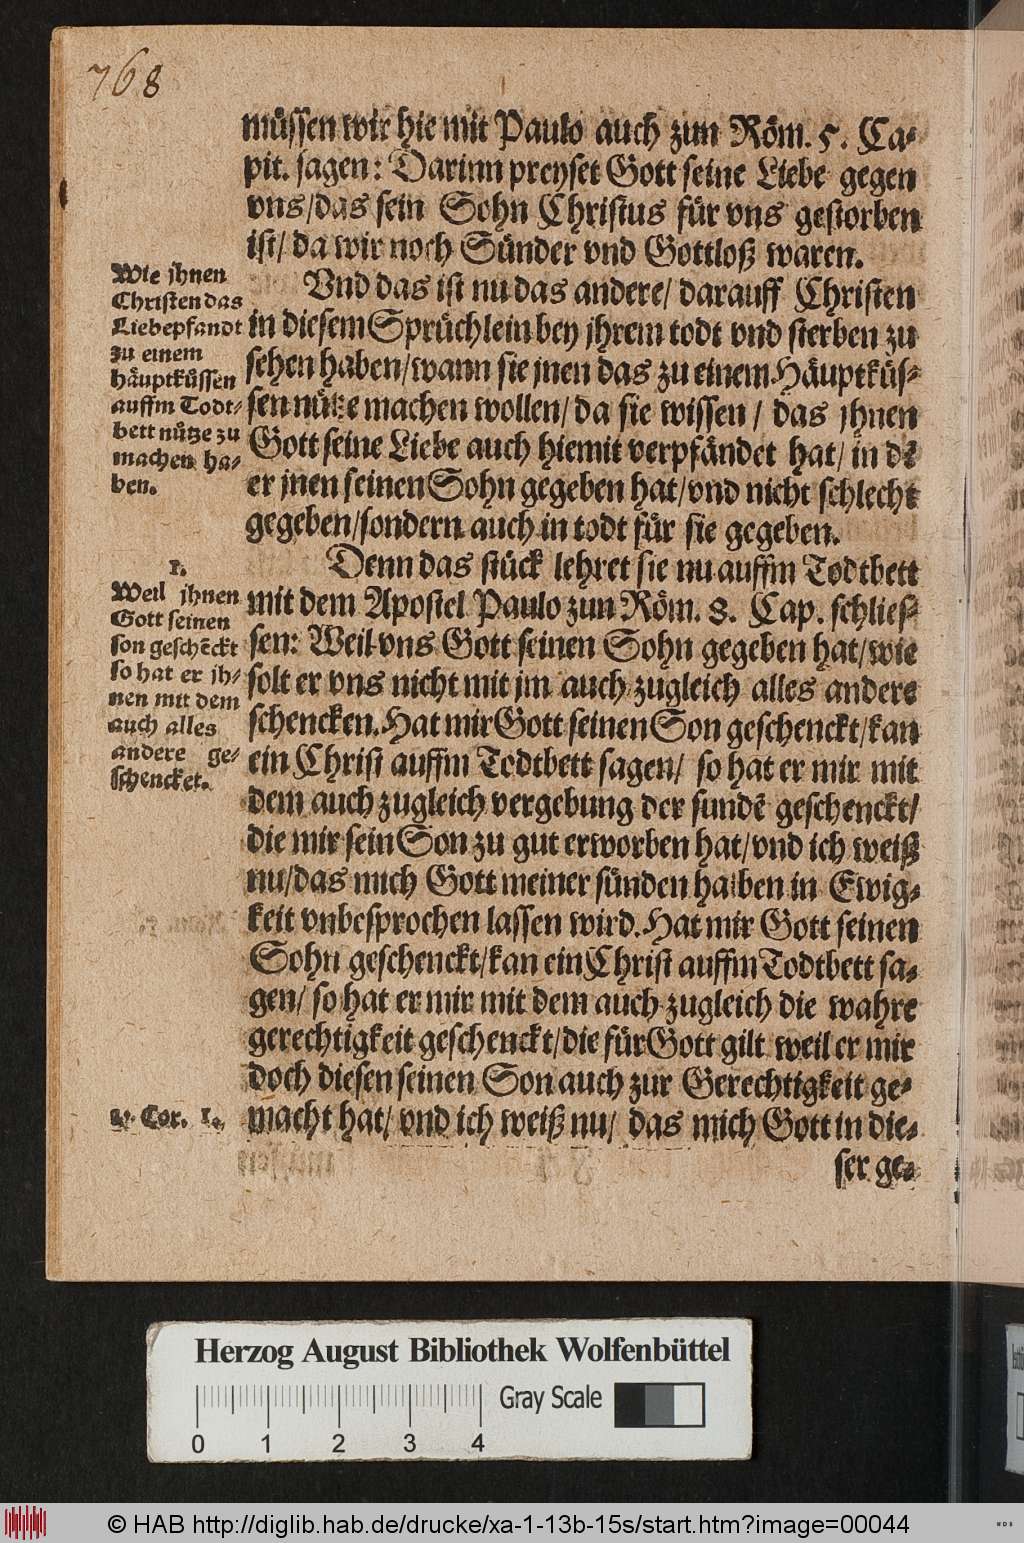 768
müssen wir hie mit Paulo auch zun Röm. 5. Ca-
pit. sagen: Darinn preyset Gott seine Liebe gegen
vns/das sein Sohn Christus für vns gestorben
ist/ da wir noch Sünder vnd Gottloß waren.
Wie jhnen
Christen das
Liebepfandt
zu einem
häuptküssen
auffm Todt-
bett nütze zu
machen ha-
ben.
Vnd das ist nu das andere/ darauff Christen
in diesem Sprüchlein bey jhrem todt vnd sterben zu
sehen haben/wann sie jnen das zu einem Häuptküs-
sen nütze machen wollen/ da sie wissen / das jhnen
Gott seine Liebe auch hiemit verpfändet hat/ in dē
er jnen seinen Sohn gegeben hat/vnd nicht schlecht
gegeben/sondern auch in todt für sie gegeben.
1.
Weil jhnen
Gott seinen
son geschēckt
so hat er jh-
nen mit dem
auch alles
andere ge-
schencket.
Denn das stück lehret sie nu auffm Todtbett
mit dem Apostel Paulo zun Röm. 8. Cap. schlies-
sen: Weil vns Gott seinen Sohn gegeben hat/wie
solt er vns nicht mit jm auch zugleich alles andere
schencken. Hat mir Gott seinen Son geschenckt/kan
ein Christ auffm Todtbett sagen/ so hat er mir mit
dem auch zugleich vergebung der sundē geschenckt/
die mir sein Son zu gut erworben hat/vnd ich weiß
nu/das mich Gott meiner sünden halben in Ewig-
keit vnbesprochen lassen wird. Hat mir Gott seinen
Sohn geschenckt/kan ein Christ auffm Todtbett sa-
gen/ so hat er mir mit dem auch zugleich die wahre
gerechtigkeit geschenckt/die für Gott gilt weil er mir
doch diesen seinen Son auch zur Gerechtigkeit ge-
1. Cor. 1.
macht hat/ vnd ich weiß nu/ das mich Gott in die-
ser ge-
Herzog August Bibliothek Wolfenbüttel
Gray Scale
0 1 2 3 4
© HAB http://diglib.hab.de/drucke/xa-1-13b-15s/start.htm?image=00044